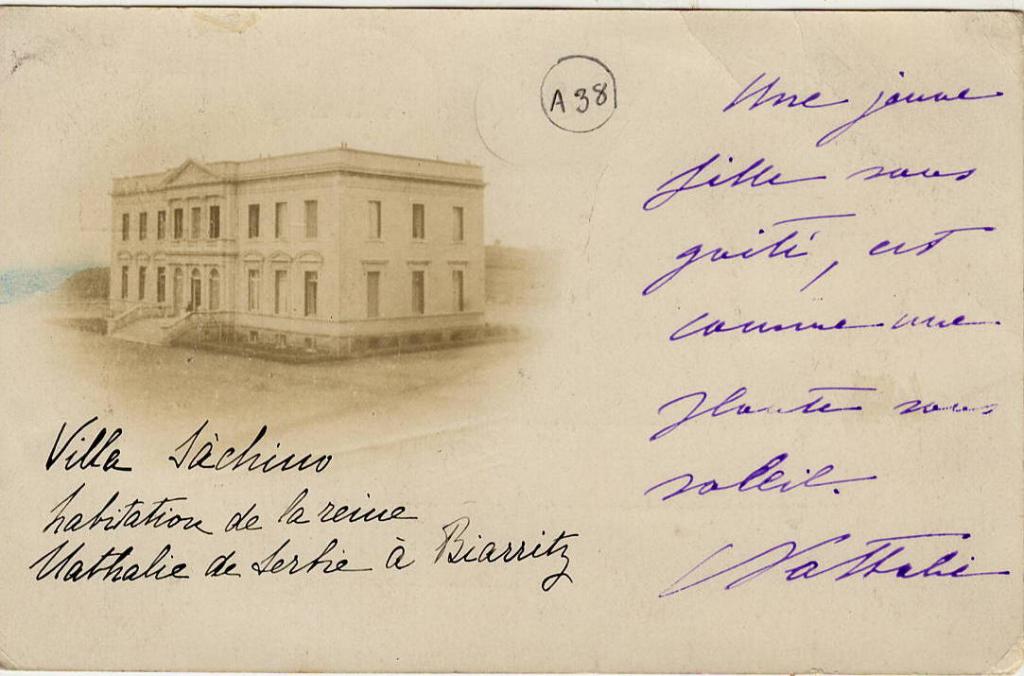 A 38
Une jeune
fille sans
gaité, est
comme une
plante sans
soleil.
Nathalie
Villa Sàchino
habitation de la reine
Nathalie de Serbie à Biarritz